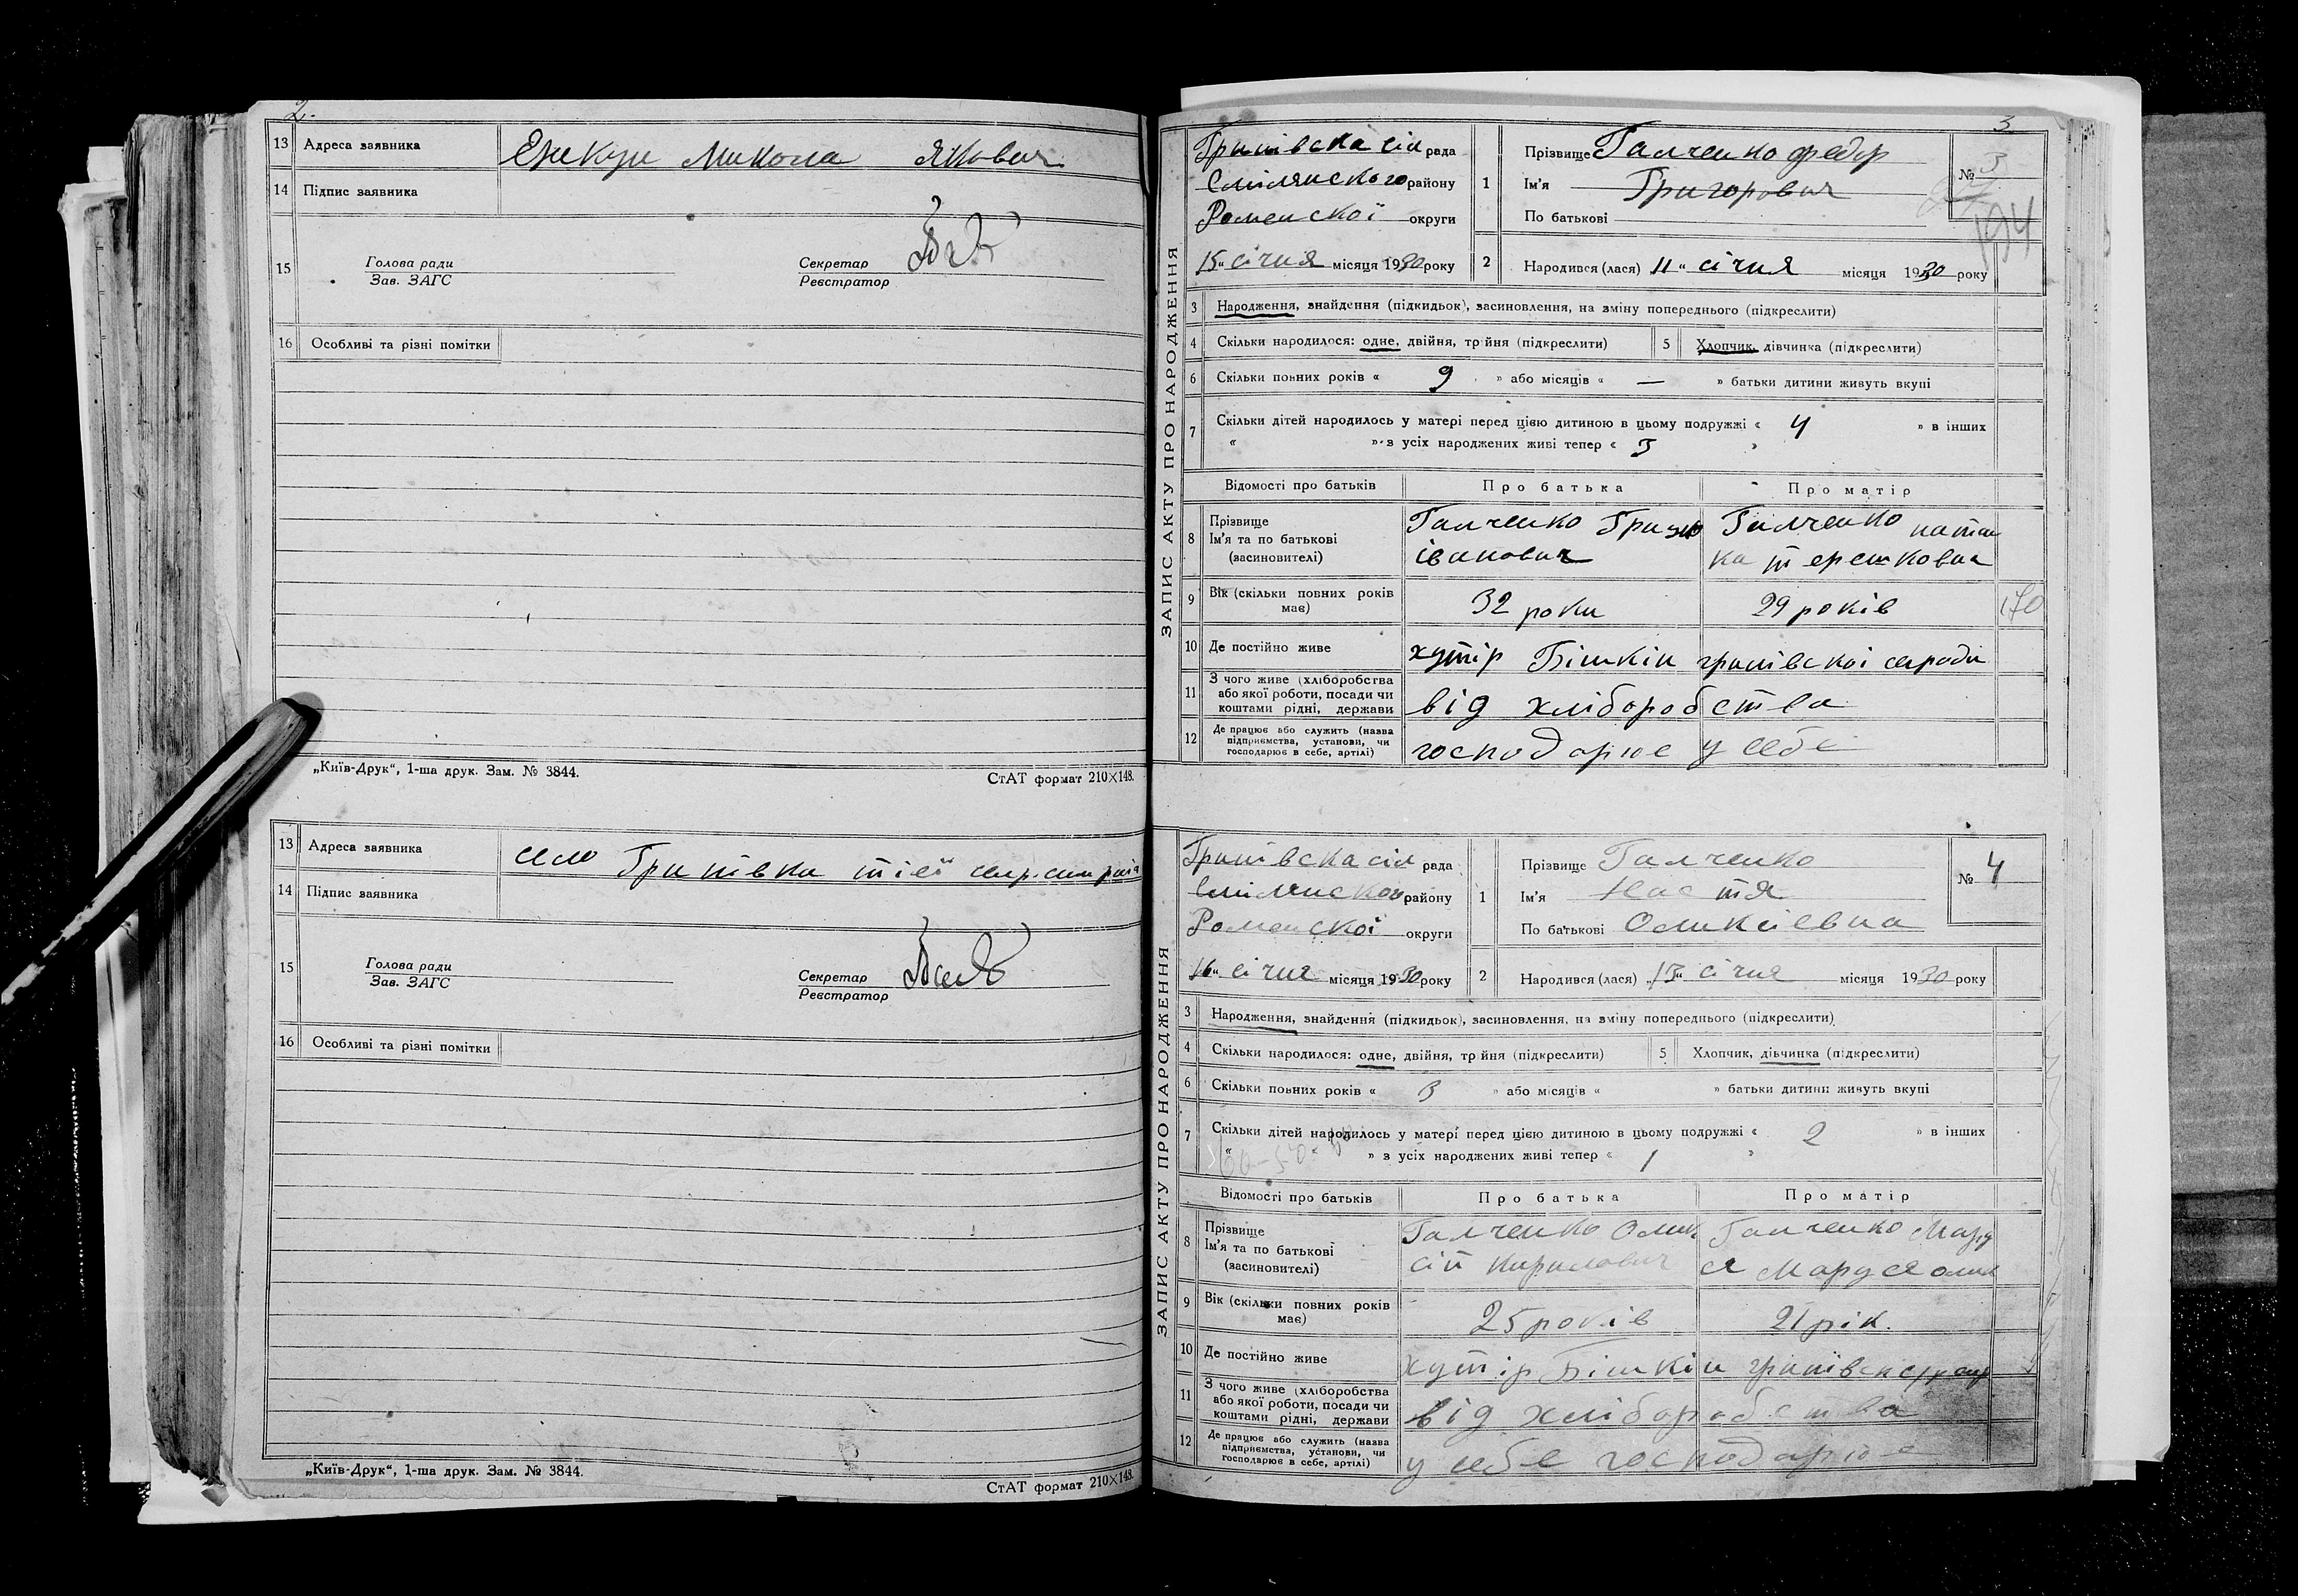 2.
13 Адреса заявника Єрекун Микола Якович
14 Підпис заявника
15 Голова ради
Зав. ЗАГС
Секретар
Реєстратор
16 Особливі та різні помітки
„Київ-Друк“, 1-ша друк. Зам. № 3844.
СтАТ формат 210×148.
13 Адреса заявника село Грипівка тієї
14 Підпис заявника
15 Голова ради
Зав. ЗАГС
Секретар
Реєстратор
16 Особливі та різні помітки
„Київ-Друк“, 1-ша друк. Зам. № 3844.
СтАТ формат 210×148.
3
ЗАПИС АКТУ ПРО НАРОДЖЕННЯ
Грипівска сіл рада
Смілянского району
Роменскої округи
15 „ січня місяця 1930 року
1 Прізвище Галченко Федір
Ім'я Григорович
По батькові
№ 3
194
2 Народився (лася) 11 „ січня місяця 1930 року
3 Народження, знайдення (підкидьок), засиновлення, на зміну попереднього (підкреслити)
4 Скільки народилося: одне, двійня, трійня (підкреслити) 5 Хлопчик, дівчинка (підкреслити)
6 Скільки повних років « 9 » або місяців « — » батьки дитини живуть вкупі
7 Скільки дітей народилось у матері перед цією дитиною в цьому подружжі « 4 » в інших
« » з усіх народжених живі тепер « 3 »
Відомості про батьків Про батька Про матір
8 Прізвище
Ім'я та по батькові
(засиновителі)
Галченко Грицко
іванович
Галченко натал
ка терешковна
9 Вік (скільки повних років має) 32 роки 29 років
170
10 Де постійно живе хутір Бішкін грипівскоі сілради
11 З чого живе (хліборобства
або якої роботи, посади чи
коштами рідні, держави
від хліборобства
12 Де працює або служить (назва
підприємства, установи, чи
господарює в себе, артілі)
господарює у себе
ЗАПИС АКТУ ПРО НАРОДЖЕННЯ
Грипівска сіл рада
Смілянског району
Роменскої округи
16 „ січня місяця 1930 року
1 Прізвище Галченко
Ім'я Настя
По батькові Оликсіевна
№ 4
2 Народився (лася) „ 13 „ січня місяця 1930 року
3 Народження, знайдення (підкидьок), засиновлення, на зміну попереднього (підкреслити)
4 Скільки народилося: одне, двійня, трійня (підкреслити) 5 Хлопчик, дівчинка (підкреслити)
6 Скільки повних років « 3 » або місяців « » батьки дитини живуть вкупі
7 Скільки дітей народилось у матері перед цією дитиною в цьому подружжі « 2 » в інших
« » з усіх народжених живі тепер « 1 »
Відомості про батьків Про батька Про матір
8 Прізвище
Ім'я та по батькові
(засиновителі)
Галченко Олик
сій Кирилович
Галченко Мару
ся Маруся олик
9 Вік (скільки повних років має) 25 років 21 рік.
10 Де постійно живе хутір Бішкін
11 З чого живе (хліборобства
або якої роботи, посади чи
коштами рідні, держави
від хліборобства
12 Де працює або служить (назва
підприємства, установи, чи
господарює в себе, артілі)
у себе господарює